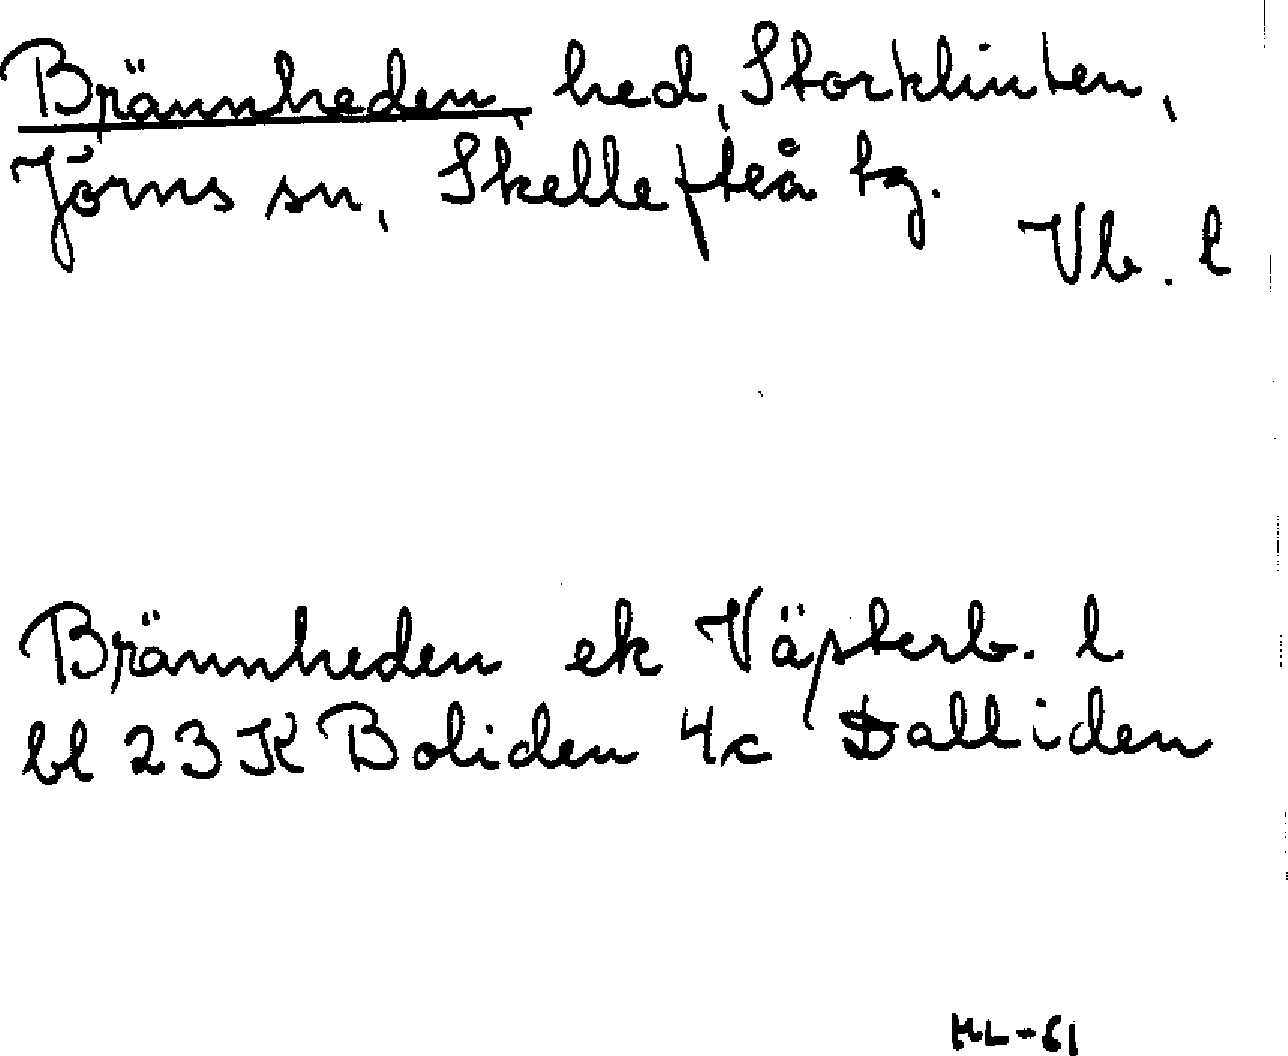 Brännheden, hed, Storklinten,
Jörns sn, Skellefteå tg.
Vb. l
Brännheden ek Västerb. l
bl 23 K Boliden 4c Dalliden
ML-61